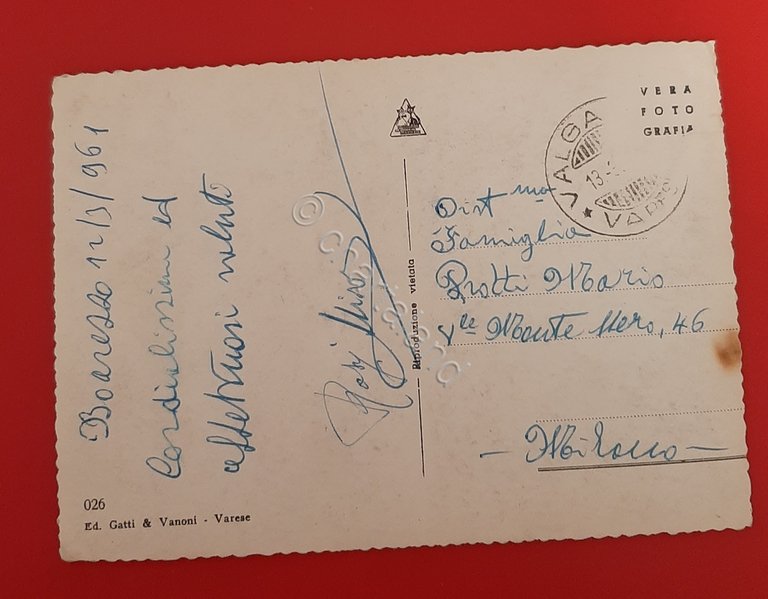 Boarezzo 12/3/961
Cordialissimi ed
affettuosi saluti
026
Ed. Gatti & Vanoni - Varese
Riproduzione vietata
VERA
FOTO
GRAFIA
VALGA
13
VARES
Dist mo
Famiglia
Protti Mario
Vle Monte Nero, 46
- Milano -